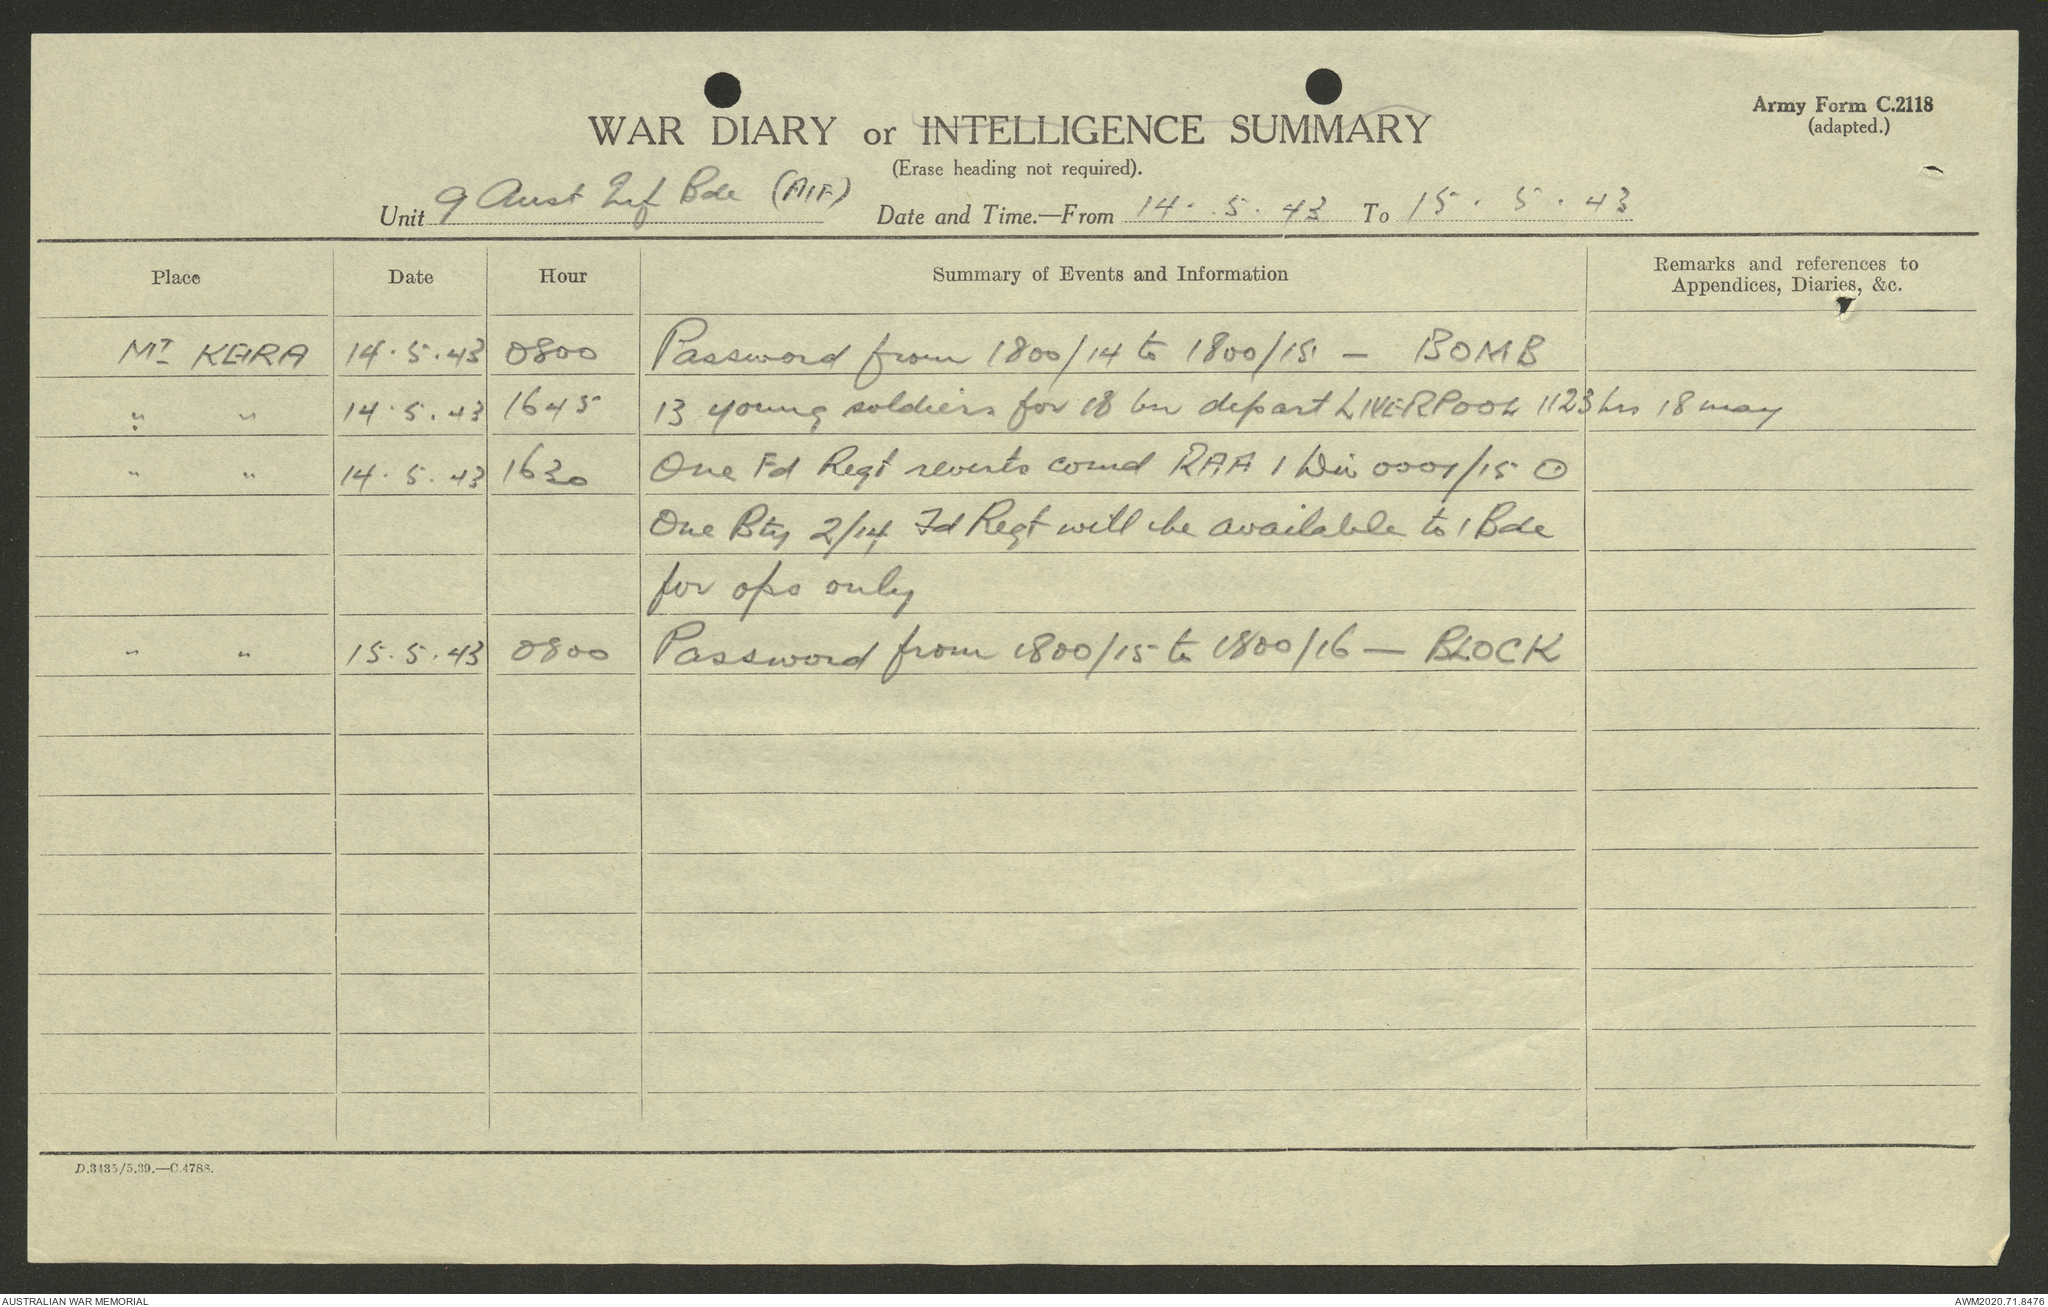 Army Form C.2118
(adapted.)
WAR DIARY or INTELLIGENCE SUMMARY
(Erase heading not required).
Unit 9 Aust Inf Bde (AIF) Date and Time.—From 14. 5. 43 To 15. 5. 43
Place Date Hour Summary of Events and Information Remarks and references to
Appendices, Diaries, &c.
MT KEIRA 14.5.43 0800 Password from 1800/14 to 1800/15 — BOMB
" " 14.5.43 1645 13 young soldiers for 18 bn depart LIVERPOOL 1123 hrs 18 may
" " 14.5.43 1630 One Fd Regt reverts comd RAA 1 Div 0001/15 ⊙
One Bty 2/14 Fd Regt will be available to 1 Bde
for ops only
" " 15.5.43 0800 Password from 1800/15 to 1800/16 — BLOCK
D.3435/5.39.—C.4788.
AUSTRALIAN WAR MEMORIAL
AWM2020.71.8476